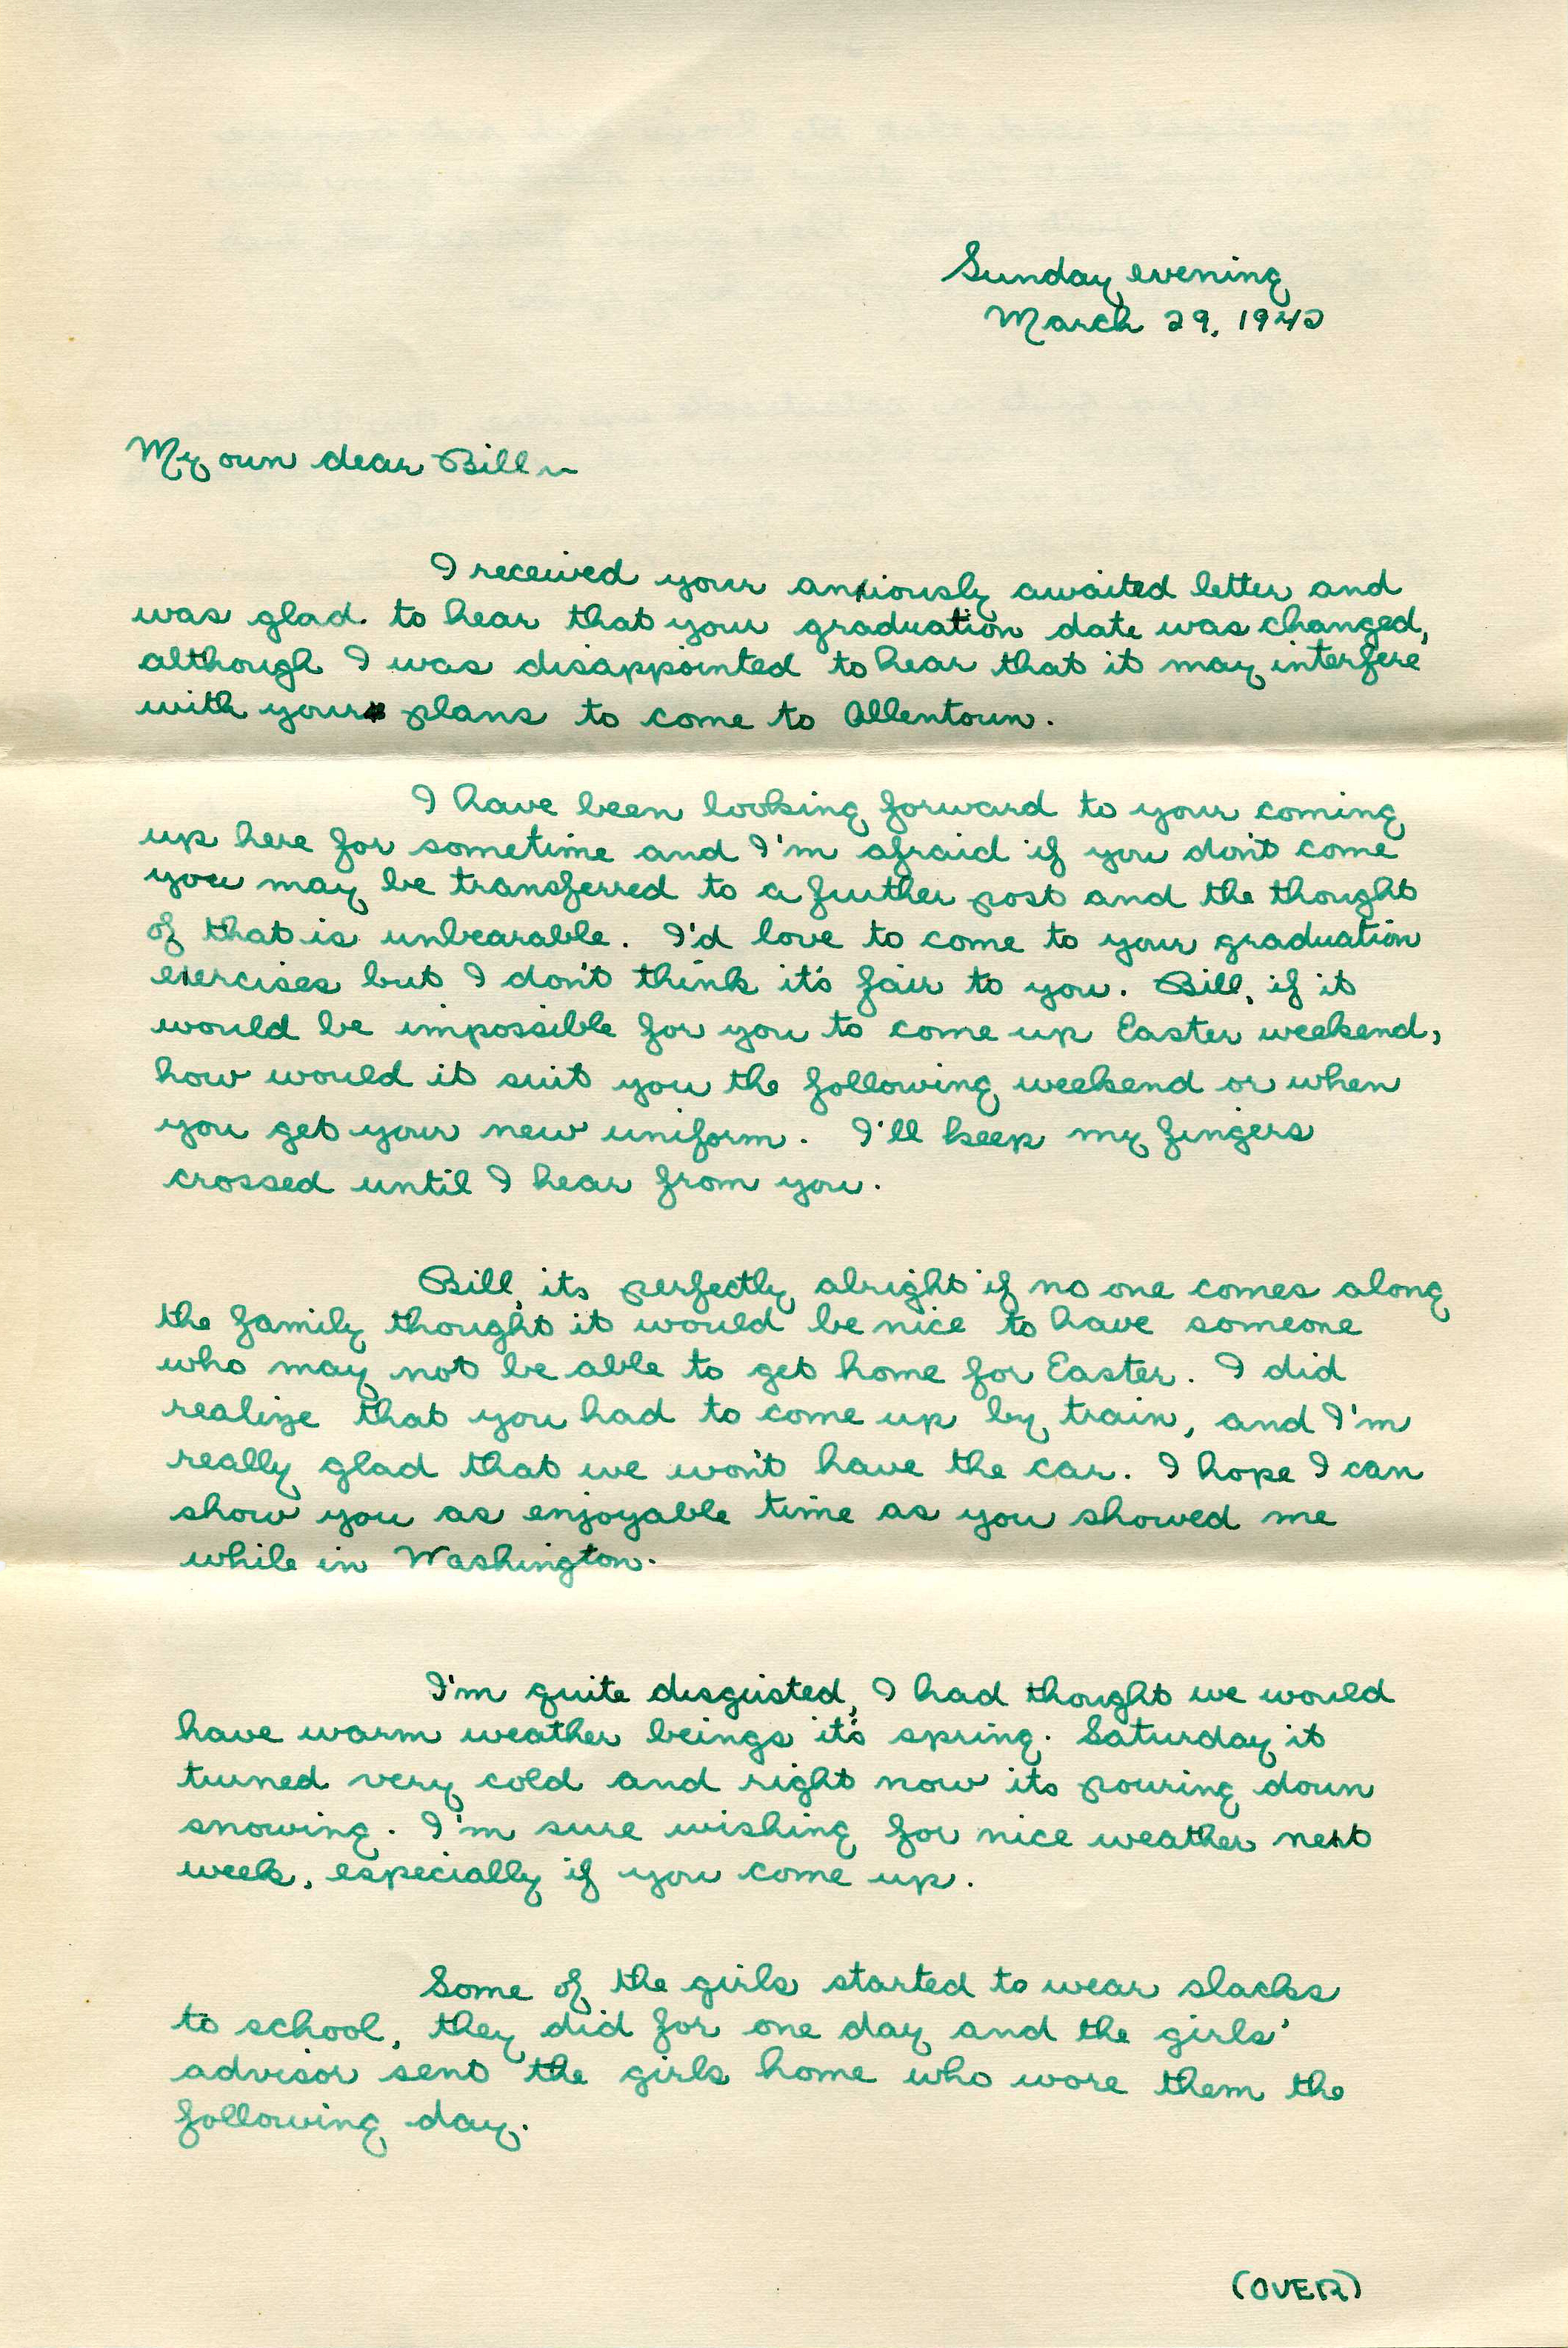 Sunday evening
March 29, 1942
My own dear Bill~
I received your anxiously awaited letter and
was glad. to hear that your graduation date was changed,
although I was disappointed to hear that it may interfere
with your plans to come to Allentown.
I have been looking forward to your coming
up here for sometime and I'm afraid if you don't come
you may be transferred to a further post and the thought
of that is unbearable. I'd love to come to your graduation
exercises but I don't think it's fair to you. Bill, if it
would be impossible for you to come up Easter weekend,
how would it suit you the following weekend or when
you get your new uniform. I'll keep my fingers
crossed until I hear from you.
Bill, its perfectly alright if no one comes along
the family thought it would be nice to have someone
who may not be able to get home for Easter. I did
realize that you had to come up by train, and I'm
really glad that we won't have the car. I hope I can
show you as enjoyable time as you showed me
while in Washington.
I'm quite disgusted, I had thought we would
have warm weather beings it's spring. Saturday it
turned very cold and right now its pouring down
snowing. I'm sure wishing for nice weather next
week, especially if you come up.
Some of the girls started to wear slacks
to school, they did for one day and the girls'
advisor sent the girls home who wore them the
following day.
(OVER)